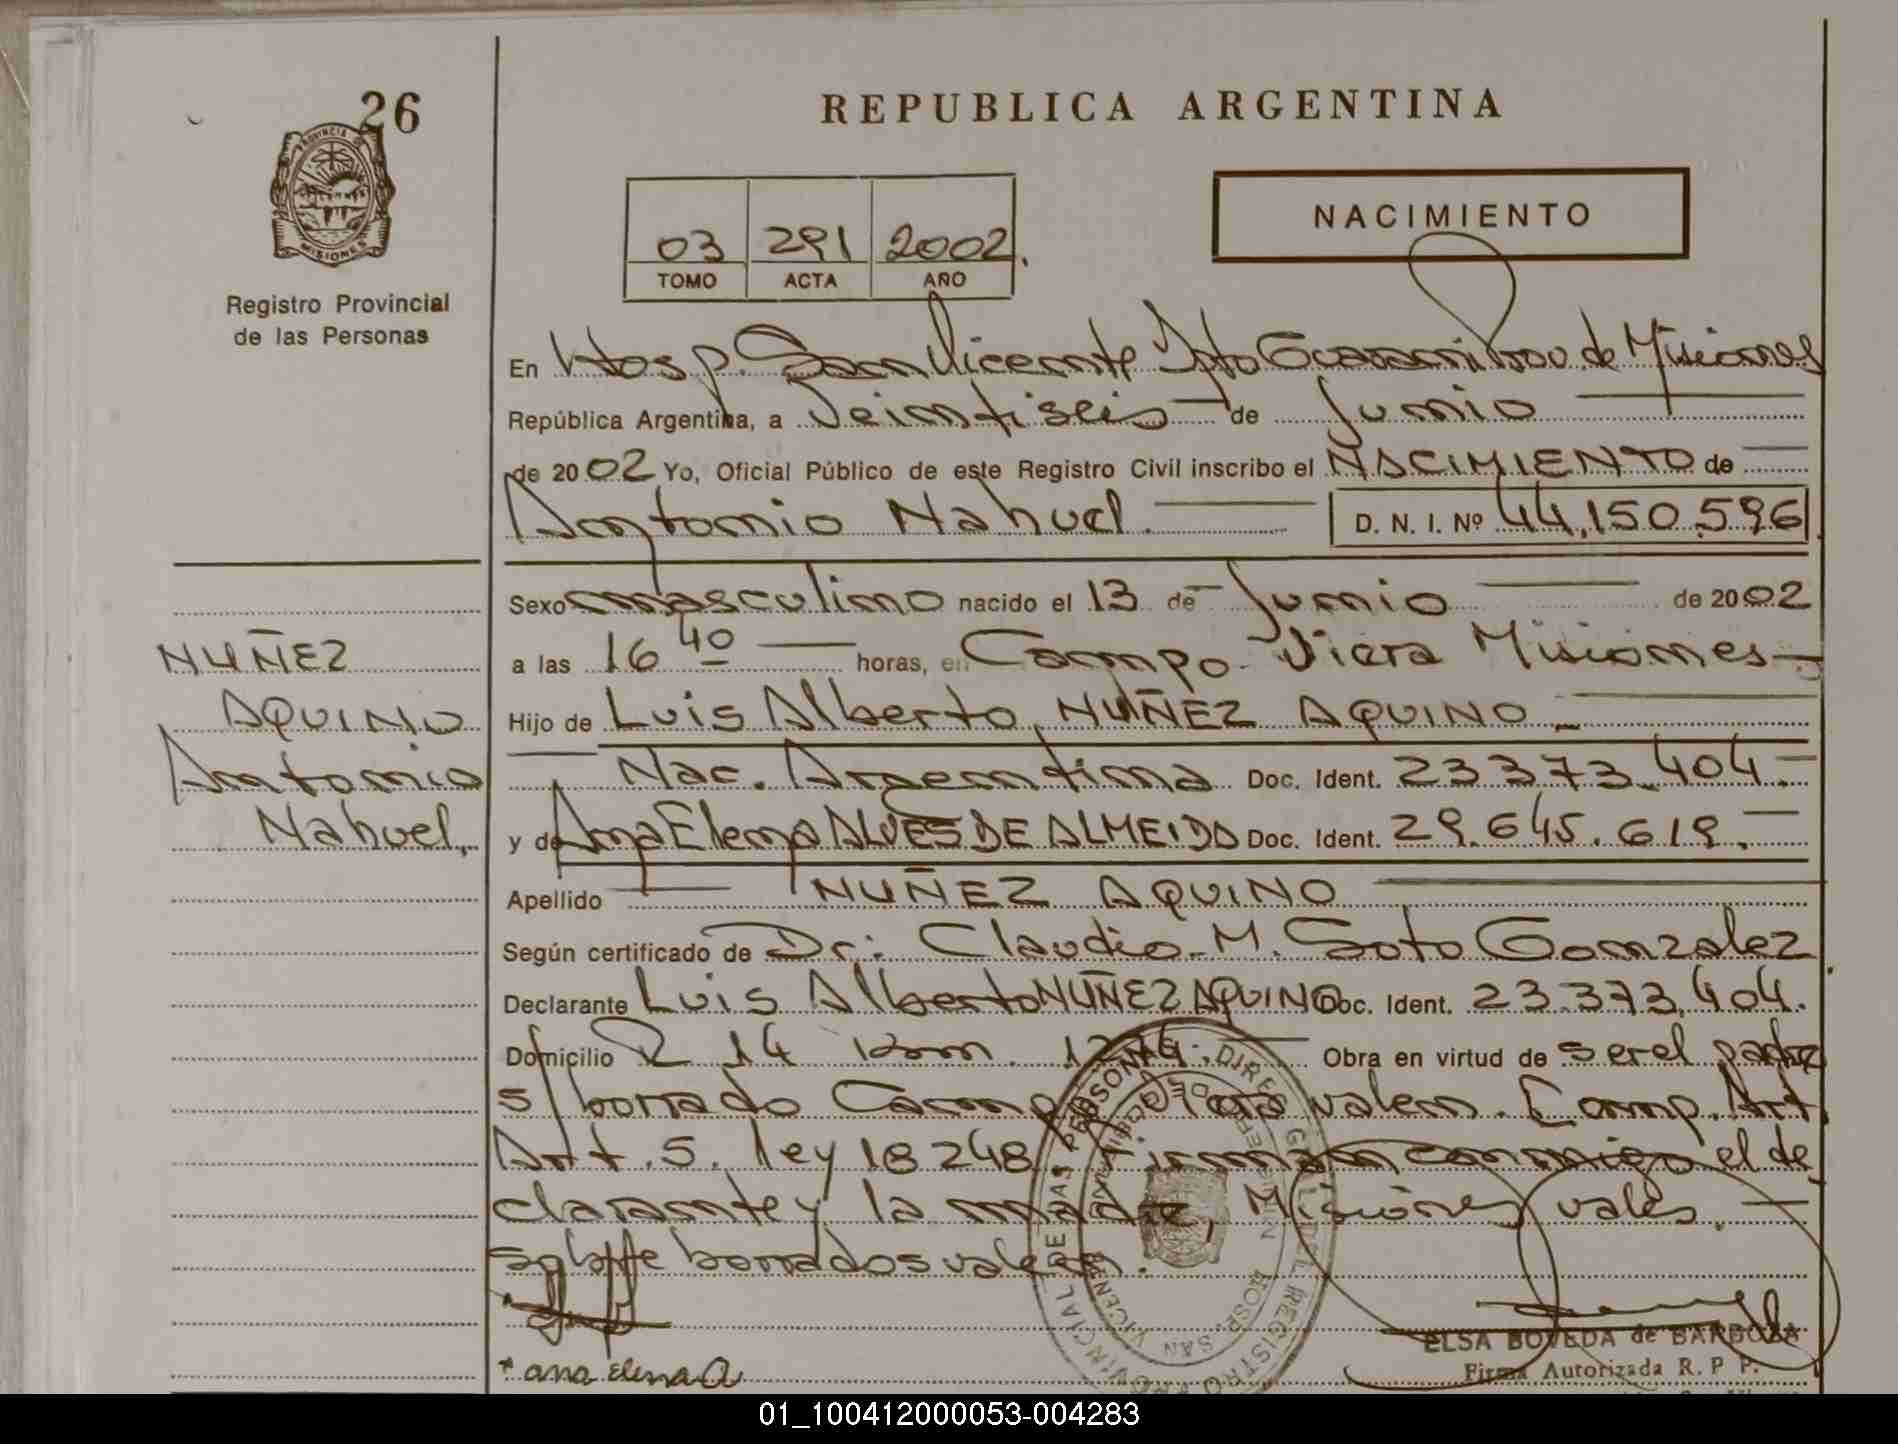 26
REPUBLICA ARGENTINA
PROVINCIA DE
MISIONES
Registro Provincial
de las Personas
03 291 2002.
TOMO ACTA AÑO
NACIMIENTO
En Hosp. San Vicente Dpto Guarani Prov. de Misiones
República Argentina, a Veintiseis de Junio
de 2002 Yo, Oficial Público de este Registro Civil inscribo el NACIMIENTO de
Antonio Nahuel. D. N. I. Nº 44.150.596
Sexo masculino nacido el 13 de Junio de 2002
a las 16 40 horas, en Campo Viera Misiones
Hijo de Luis Alberto NUÑEZ AQUINO
Nac. Argentina Doc. Ident. 23.373.404.
y de Ana Elena ALVES DE ALMEIDA Doc. Ident. 29.645.619.
Apellido NUÑEZ AQUINO
Según certificado de Dr: Claudio M. Soto Gonzalez
Declarante Luis Alberto NUÑEZ AQUINO Doc. Ident. 23.373.404.
Domicilio R 14 Km. Obra en virtud de ser el padre
s/borrado Campo Viera valen. Comp. Art.
Art. 5. ley 18248. Firman conmigo el de
clarante y la madre, Misiones vale.
borrados valen.
ana Elena A
NUÑEZ
AQUINO
Antonio
Nahuel.
ELSA BOVEDA de BARBOZA
Firma Autorizada R. P. P.
HOSP. SAN VICENTE
01_100412000053-004283